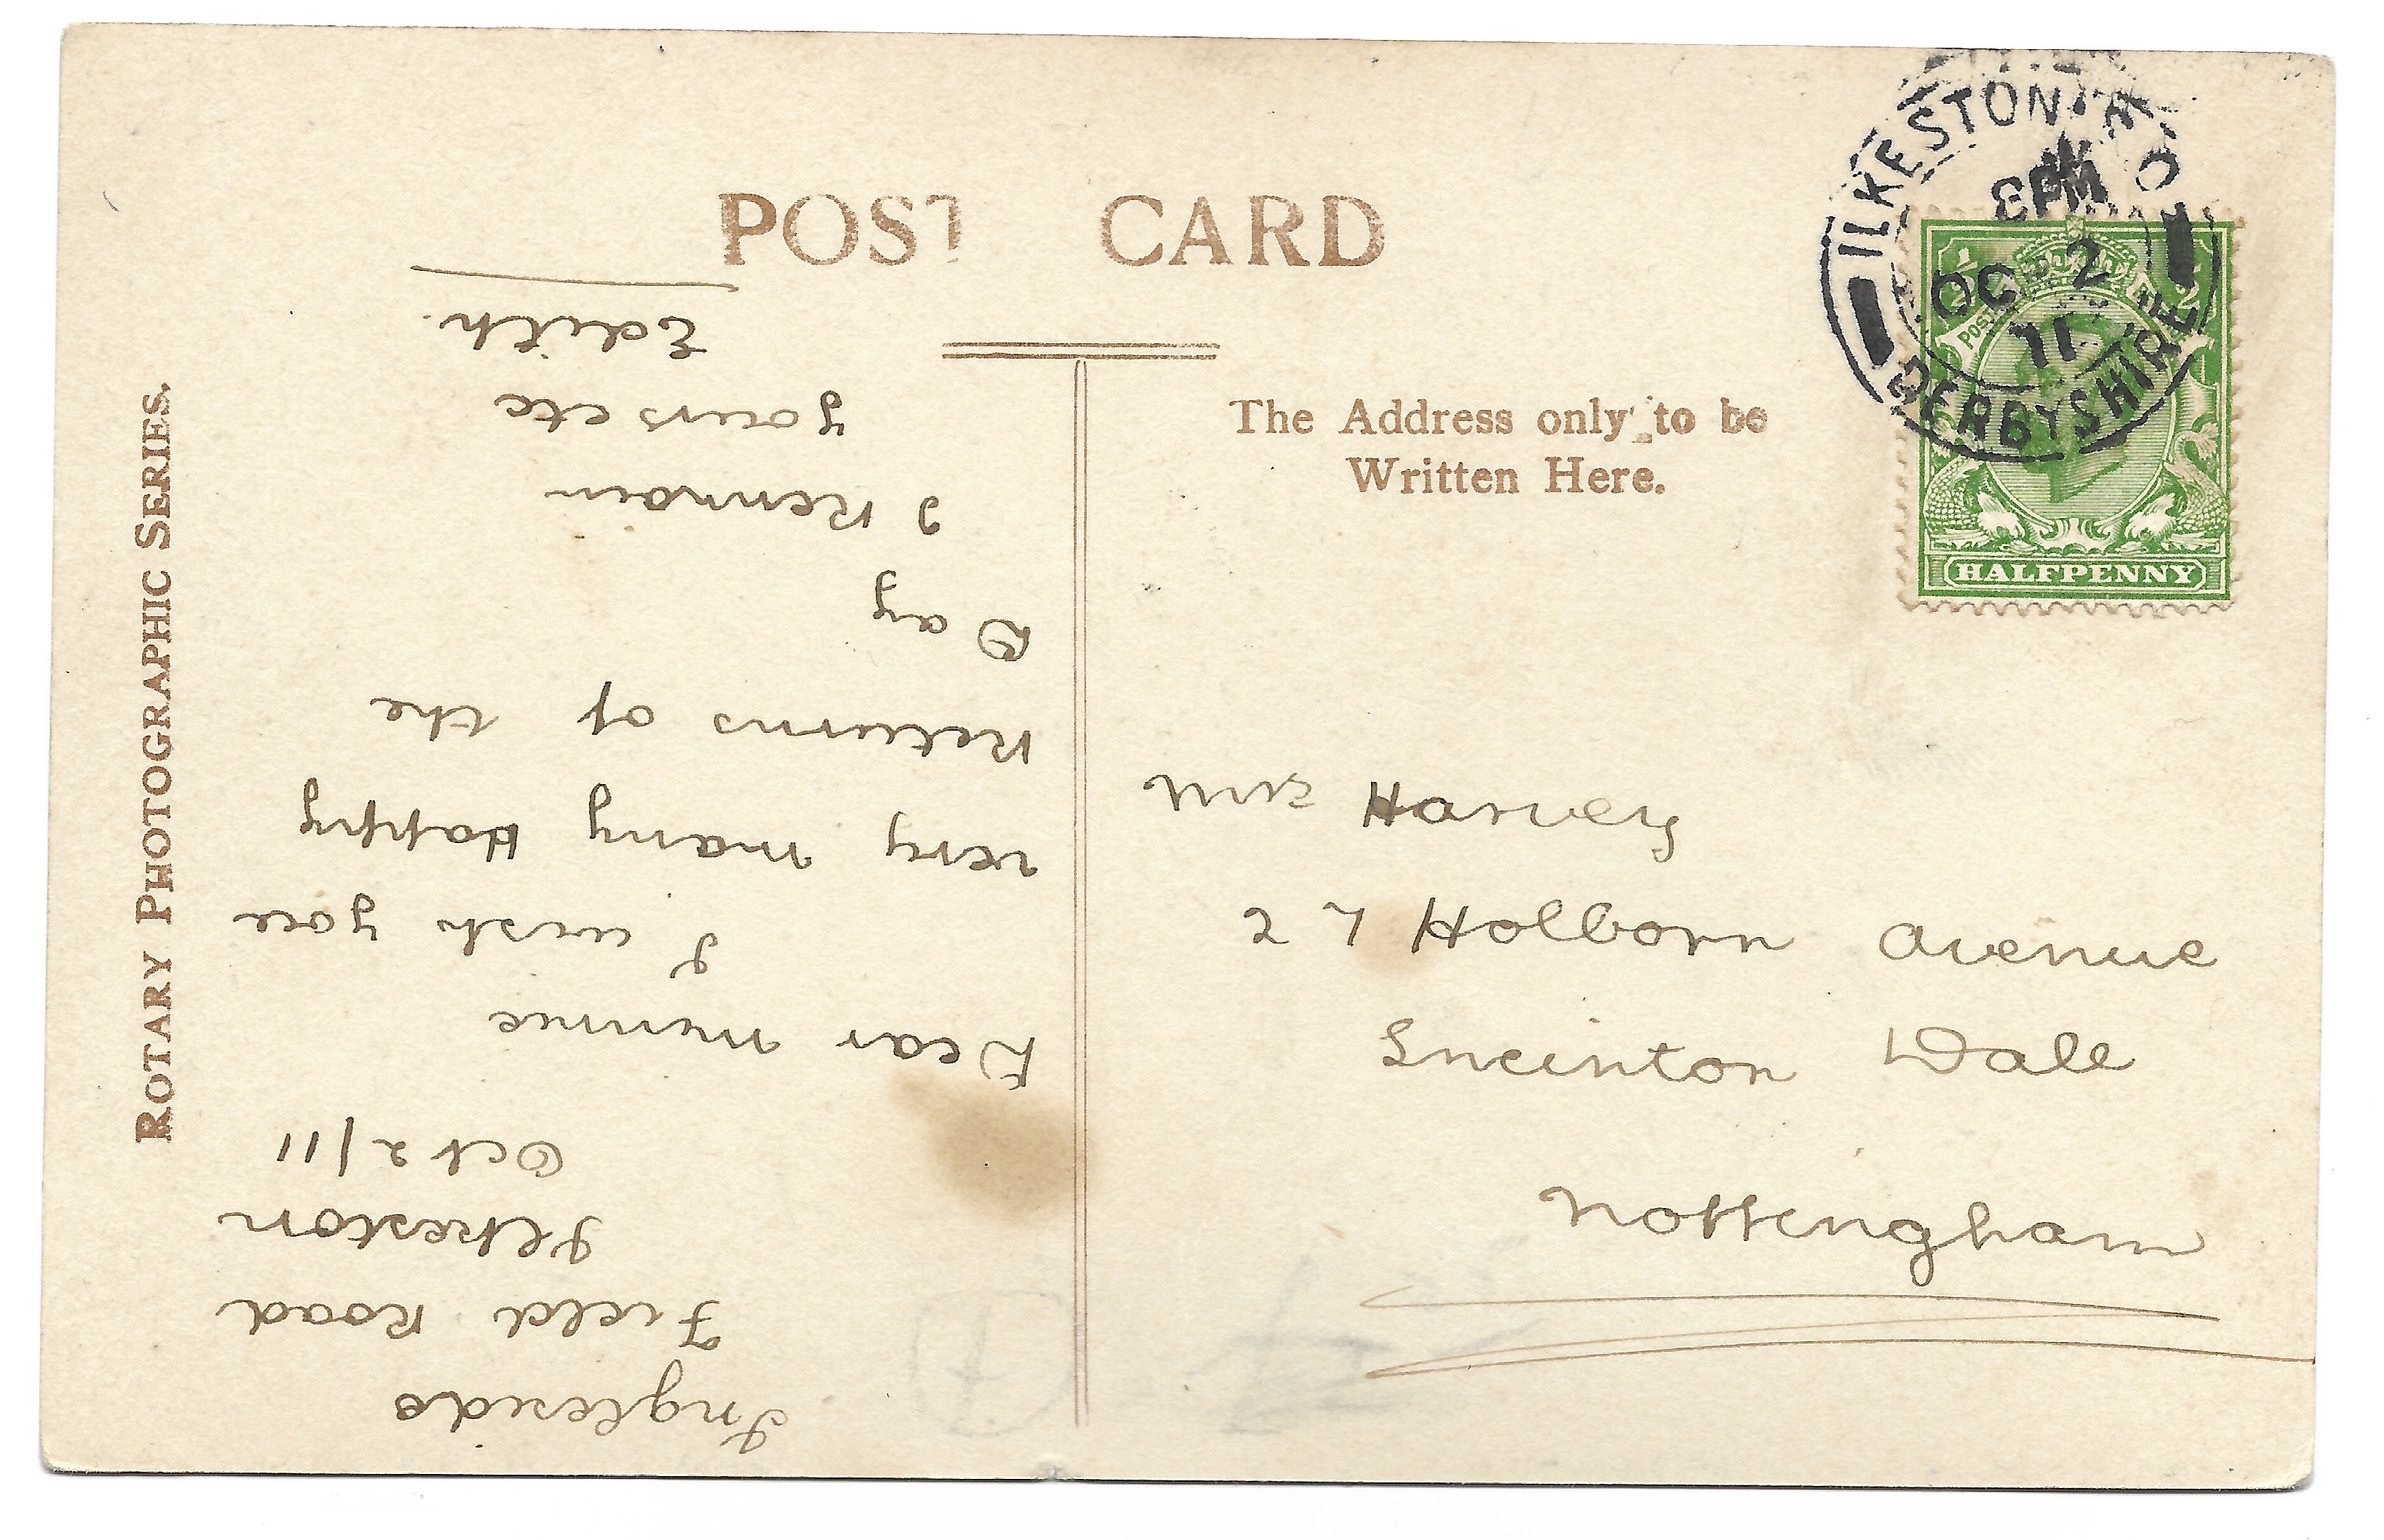 POST CARD
The Address only to be
Written Here.
ROTARY PHOTOGRAPHIC SERIES.
ILKESTON
8PM
OC 2
11
DERBYSHIRE
HALFPENNY
Harvey
27 Holborn Avenue
Sneinton Dale
Nottingham
Ingleside
Field Road
Ilkeston
Oct 2/11
Dear minnie
I wish you
very many Happy
Returns of the
Day
I Remain
yours etc
Edith.